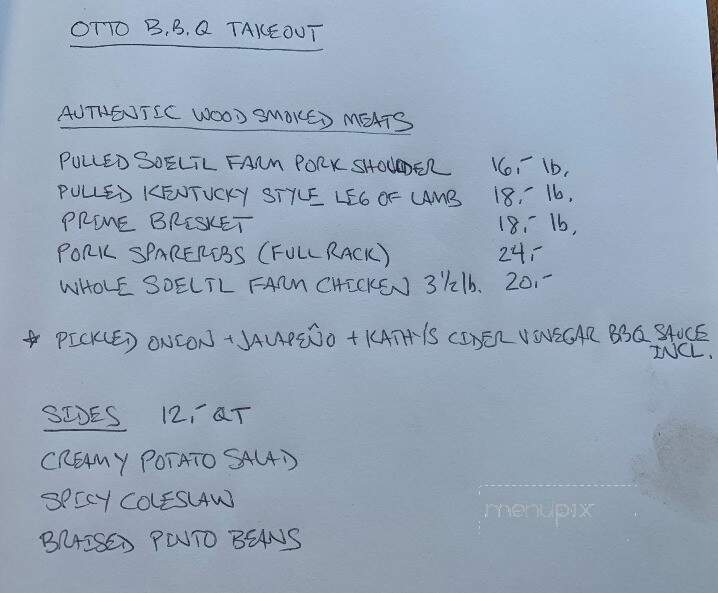 OTTO B.B.Q TAKEOUT
AUTHENTIC WOOD SMOKED MEATS
PULLED SOELTL FARM PORK SHOULDER 16,- lb,
PULLED KENTUCKY STYLE LEG OF LAMB 18,- lb,
PRIME BRISKET 18,- lb,
PORK SPARERIBS (FULL RACK) 24,-
WHOLE SOELTL FARM CHICKEN 3 1/2 lb. 20,-
* PICKLED ONION + JALAPEÑO + KATHY'S CIDER VINEGAR BBQ SAUCE
INCL.
SIDES 12,- QT
CREAMY POTATO SALAD
SPICY COLESLAW
menupix
BRAISED PINTO BEANS